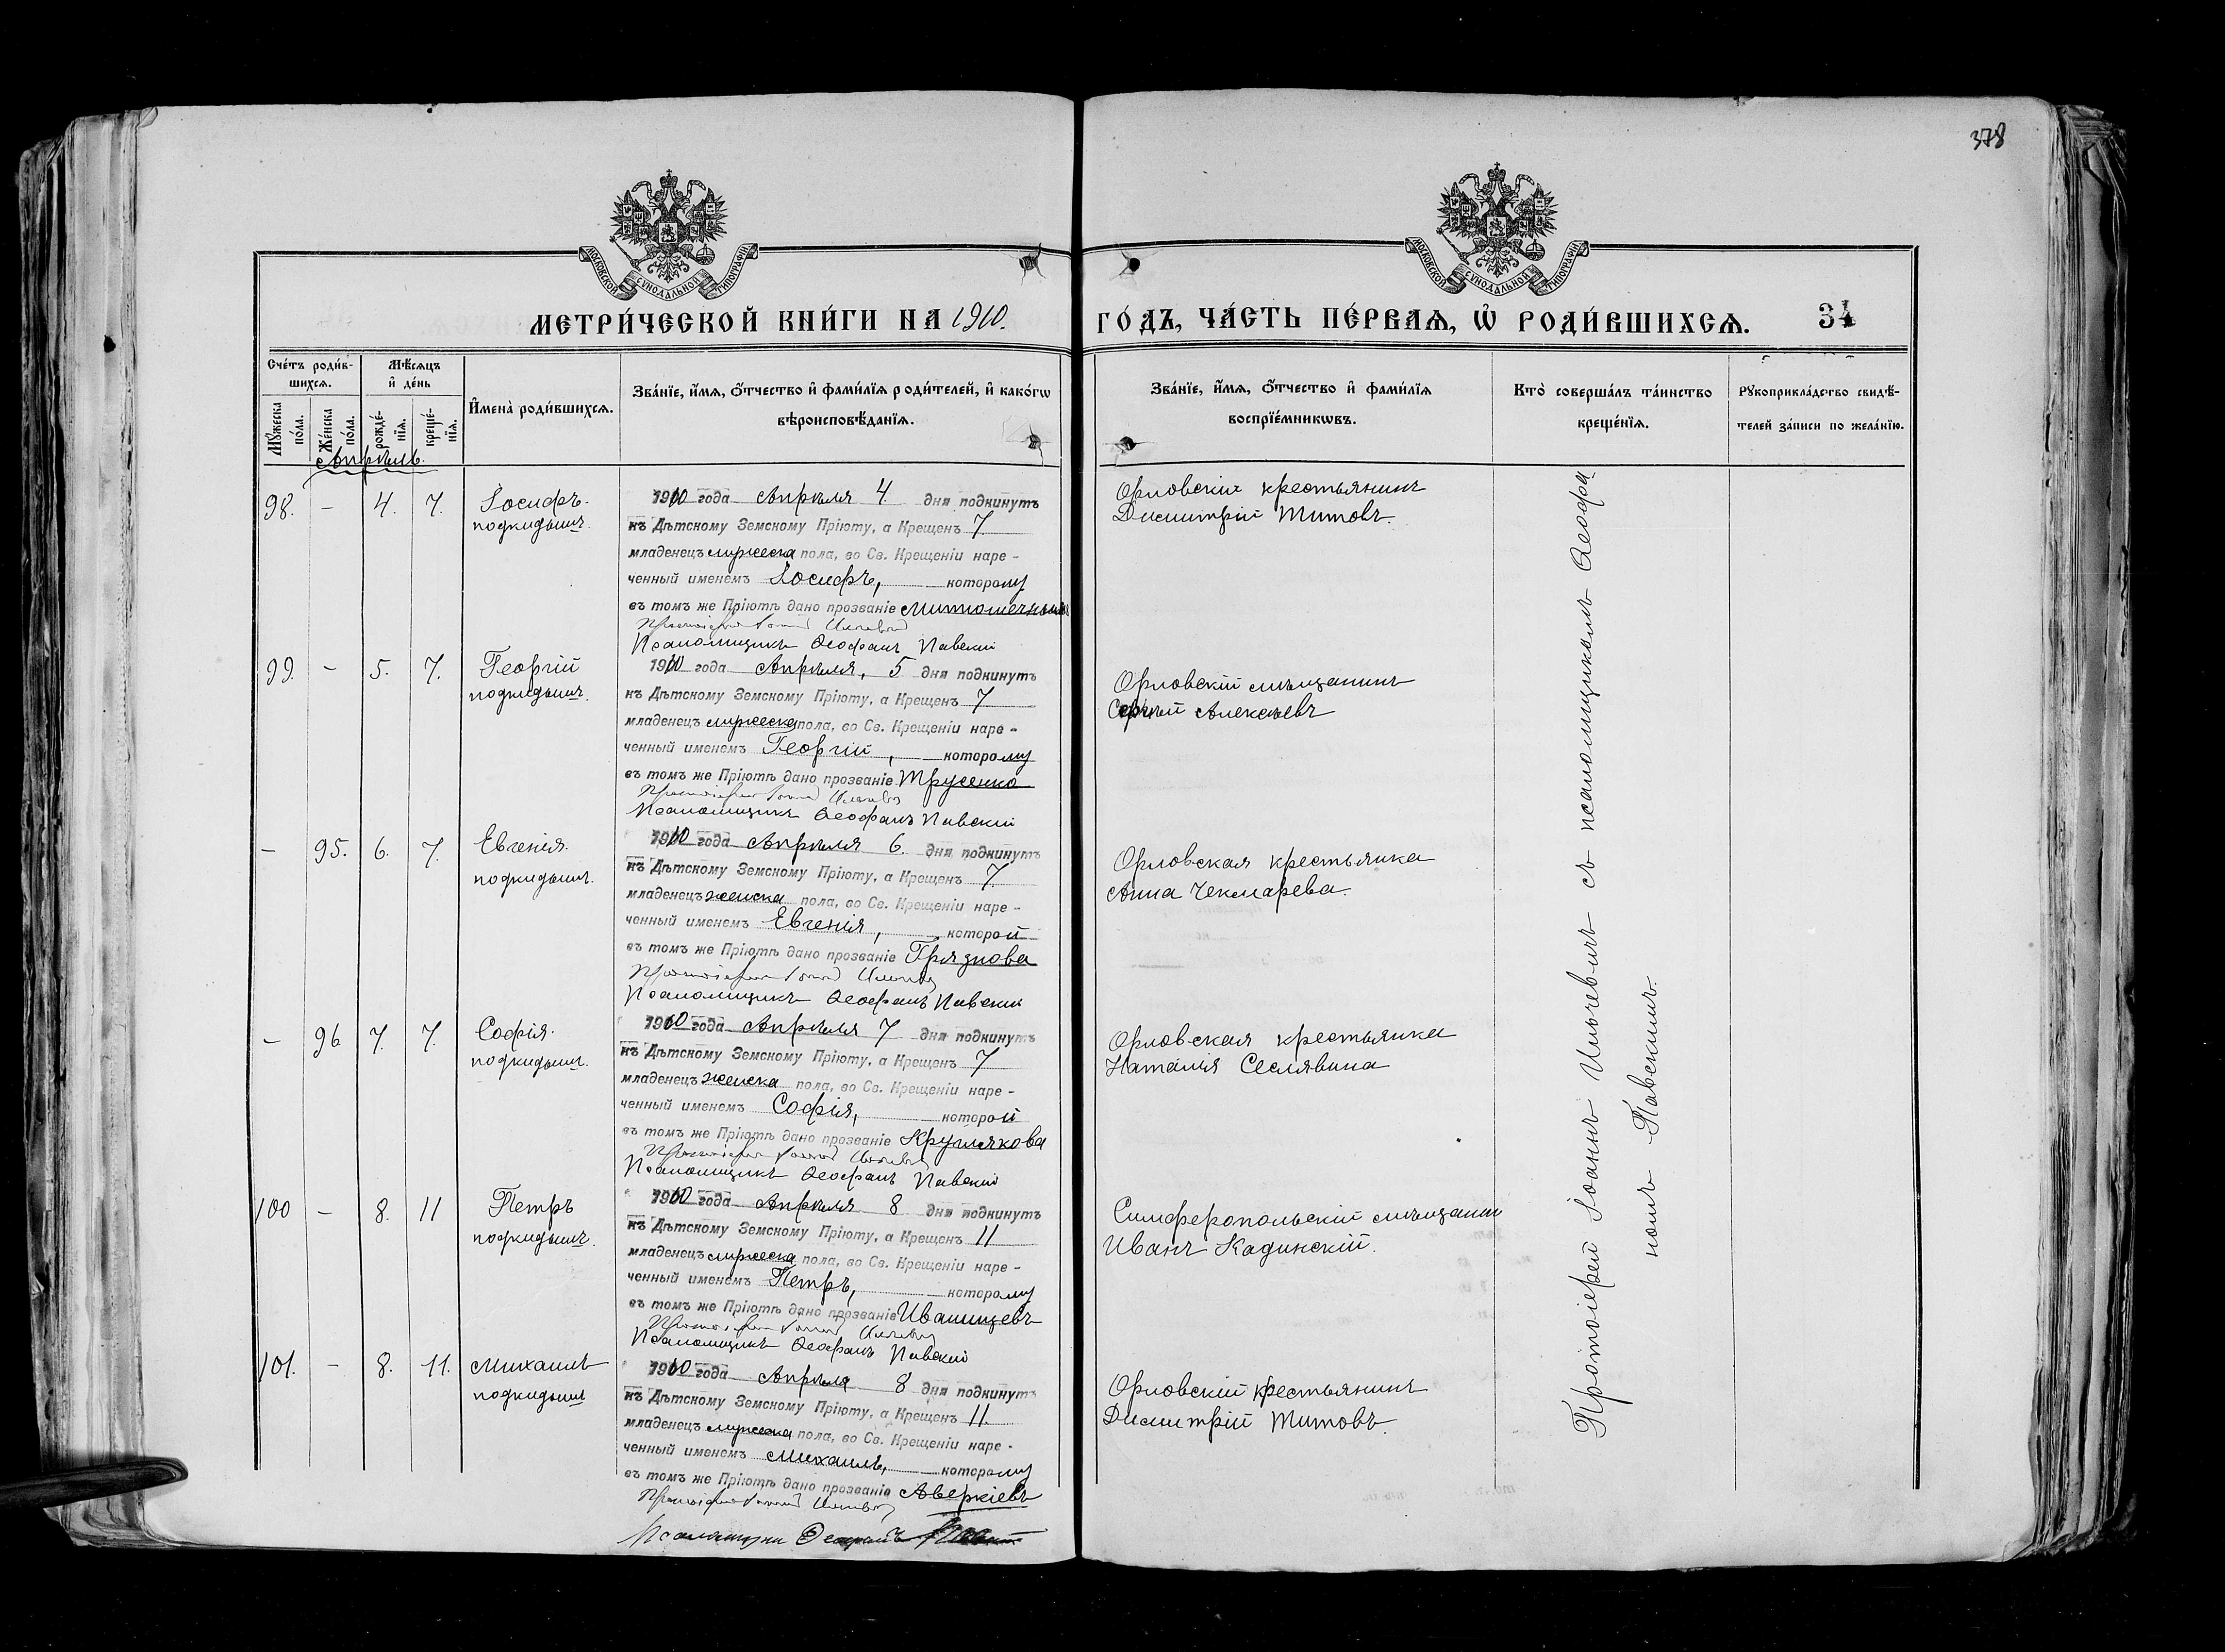 378
МОСКОВСКОЙ СѴНОДАЛЬНОЙ ТИПОГРАФІИ
МОСКОВСКОЙ СѴНОДАЛЬНОЙ ТИПОГРАФІИ
МЕТРИ́ЧЕСКОЙ КНИ́ГИ НА 1910.
ГО́ДЪ, ЧА́СТЬ ПЕ́РВАѦ, Ѡ РОДИ́ВШИХСѦ. 34
Сче́тъ роди́в-
шихся.
Мѣ́сяцъ
и де́нь
Му́жеска
по́ла.
Же́нска
по́ла.
рожде́-
нїя.
креще́-
нїя.
Имена̀ роди́вшихся.
Зва́нїе, и́мя, о́тчество и фами́лїя роди́телей, и како́гѡ
вѣроисповѣ́данїя.
Зва́нїе, и́мя, о́тчество и фами́лїя
воспрїе́мникѡвъ.
Кто̀ соверша́лъ та́инство
креще́нїя.
Рукоприкла́дство свидѣ́-
телей за́писи по жела́нїю.
Апрѣль.
98. – 4. 7. Іосифъ.
подкидышъ.
1910 года Апрѣля 4 дня подкинутъ
къ Дѣтскому Земскому Пріюту, а Крещенъ 7
младенецъ мужеска пола, во Св. Крещеніи наре-
ченный именемъ Іосифъ, которому
въ томъ же Пріютѣ дано прозваніе
Протоіерей Іоаннъ Ильчевъ
Псаломщикъ Ѳеофанъ Павскій
Орловскій крестьянинъ
Димитрій Титовъ.
99. – 5. 7. Георгій
подкидышъ.
1910 года Апрѣля, 5 дня подкинутъ
къ Дѣтскому Земскому Пріюту, а Крещенъ 7
младенецъ мужеска пола, во Св. Крещеніи наре-
ченный именемъ Георгій, которому
въ томъ же Пріютѣ дано прозваніе Трусенко
Протоіерей Іоаннъ Ильчевъ
Псаломщикъ Ѳеофанъ Павскій
Орловскій мѣщанинъ
Сергѣй Алексѣевъ
– 95. 6. 7. Евгенія.
подкидышъ.
1910 года Апрѣля 6. дня подкинутъ
къ Дѣтскому Земскому Пріюту, а Крещенъ 7.
младенецъ женска пола, во Св. Крещеніи наре-
ченный именемъ Евгенія, которой
въ томъ же Пріютѣ дано прозваніе Грязнова
Протоіерей Іоаннъ Ильчевъ
Псаломщикъ Ѳеофанъ Павскій
Орловская крестьянка
Анна Чекмарева.
– 96 7. 7. Софія.
подкидышъ.
1910 года Апрѣля 7 дня подкинутъ
къ Дѣтскому Земскому Пріюту, а Крещенъ 7
младенецъ женска пола, во Св. Крещеніи наре-
ченный именемъ Софія, которой
въ томъ же Пріютѣ дано прозваніе
Протоіерей Іоаннъ Ильчевъ
Псаломщикъ Ѳеофанъ Павскій
Орловская крестьянка
Наталія Селявина
100 – 8. 11 Петръ
подкидышъ.
1910 года Апрѣля 8 дня подкинутъ
къ Дѣтскому Земскому Пріюту, а Крещенъ 11
младенецъ мужеска пола, во Св. Крещеніи наре-
ченный именемъ Петръ, которому
въ томъ же Пріютѣ дано прозваніе Иванищевъ
Протоіерей Іоаннъ Ильчевъ
Псаломщикъ Ѳеофанъ Павскій
Симферопольскій мѣщанинъ
Иванъ Кадинскій.
101. – 8. 11. Михаилъ
подкидышъ
1910 года Апрѣля 8 дня подкинутъ
къ Дѣтскому Земскому Пріюту, а Крещенъ 11.
младенецъ мужеска пола, во Св. Крещеніи наре-
ченный именемъ Михаилъ, которому
въ томъ же Пріютѣ дано прозваніе Аверкіевъ
Протоіерей Іоаннъ Ильчевъ
Псаломщикъ Ѳеофанъ Павскій
Орловскій крестьянинъ
Димитрій Титовъ.
Протоіерей Іоаннъ Ильчевымъ съ псаломщикомъ Ѳеофа
номъ Павскимъ.